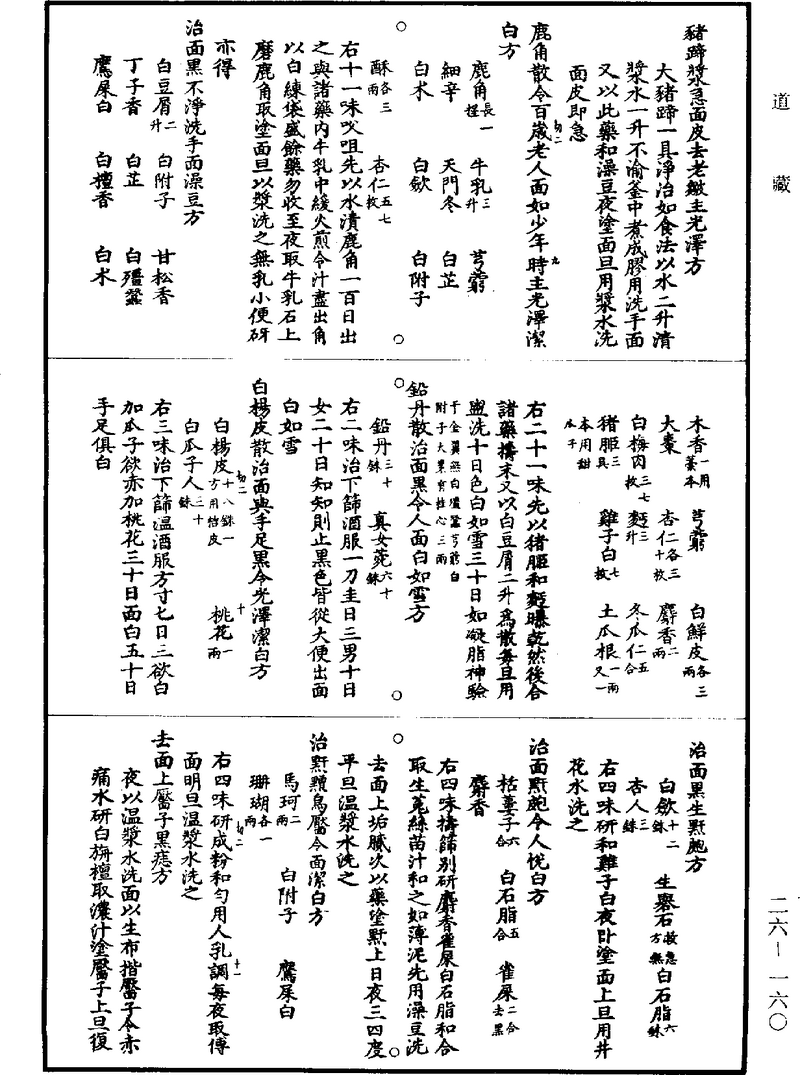 道藏
豬蹄漿急面皮去老皺主光澤方
大豬蹄一具淨治如食法以水二升清
漿水一升不渝釜中煮成膠用洗手面
又以此藥和澡豆夜塗面旦用漿水洗
面皮即急
鹿角散令百歲老人面如少年時主光澤潔
白方
鹿角長一握 牛乳三升 芎藭
細辛 天門冬 白芷
白朮 白歛 白附子
酥各三兩 杏仁五七枚
右十一味㕮咀先以水漬鹿角一百日出
之與諸藥內牛乳中緩火煎令汁盡出角
以白練袋盛餘藥勿收至夜取牛乳石上
磨鹿角取塗面旦以漿洗之無乳小便研
亦得
治面黑不淨洗手面澡豆方
白豆屑二升 白附子 甘松香
丁子香 白芷 白殭蠶
鷹屎白 白檀香 白朮
木香一用藁本 芎藭 白鮮皮各三兩
大棗 杏仁各三十枚 麝香二兩
白梅肉三七枚 麪三升 冬瓜仁五合
豬胰三具 雞子白七枚 土瓜根一兩又一
本用甜瓜子
右二十一味先以豬胰和麪曝乾然後合
諸藥擣末又以白豆屑二升為散每旦用
盥洗十日色白如雪三十日如凝脂神驗
千金翼無白殭蠶芎藭白
附子大棗有桂心三兩
鉛丹散治面黑令人面白如雪方
鉛丹三十銖 真女菀六十銖
右二味治下篩酒服一刀圭日三男十日
女二十日知知則止黑色皆從大便出面
白如雪
白楊皮散治面與手足黑令光澤潔白方
白楊皮十八銖一方用橘皮 桃花一兩
白瓜子人三十銖
右三味治下篩溫酒服方寸匕日三欲白
加瓜子欲赤加桃花三十日面白五十日
手足俱白
治面黑生䵟皰方
白歛十二銖 生礬石救急方無 白石脂六銖
杏人三銖
右四味研和雞子白夜臥塗面上旦用井
花水洗之
治面䵟皰令人悅白方
栝蔞子六合 白石脂五合 雀屎二合去黑
麝香
右四味擣篩別研麝香雀屎白石脂和合
取生菟絲苗汁和之如薄泥先用澡豆洗
去面上垢膩次以藥塗䵟上日夜三四度
平旦溫漿水洗之
治䵟䵳烏靨令面潔白方
馬珂二兩 白附子 鷹屎白
珊瑚各一兩
右四味研成粉和勻用人乳調每夜取傅
面明旦溫漿水洗之
去面上靨子黑痣方
夜以溫漿水洗面以生布揩靨子令赤
痛水研白旃檀取濃汁塗靨子上旦復
二六—一六〇